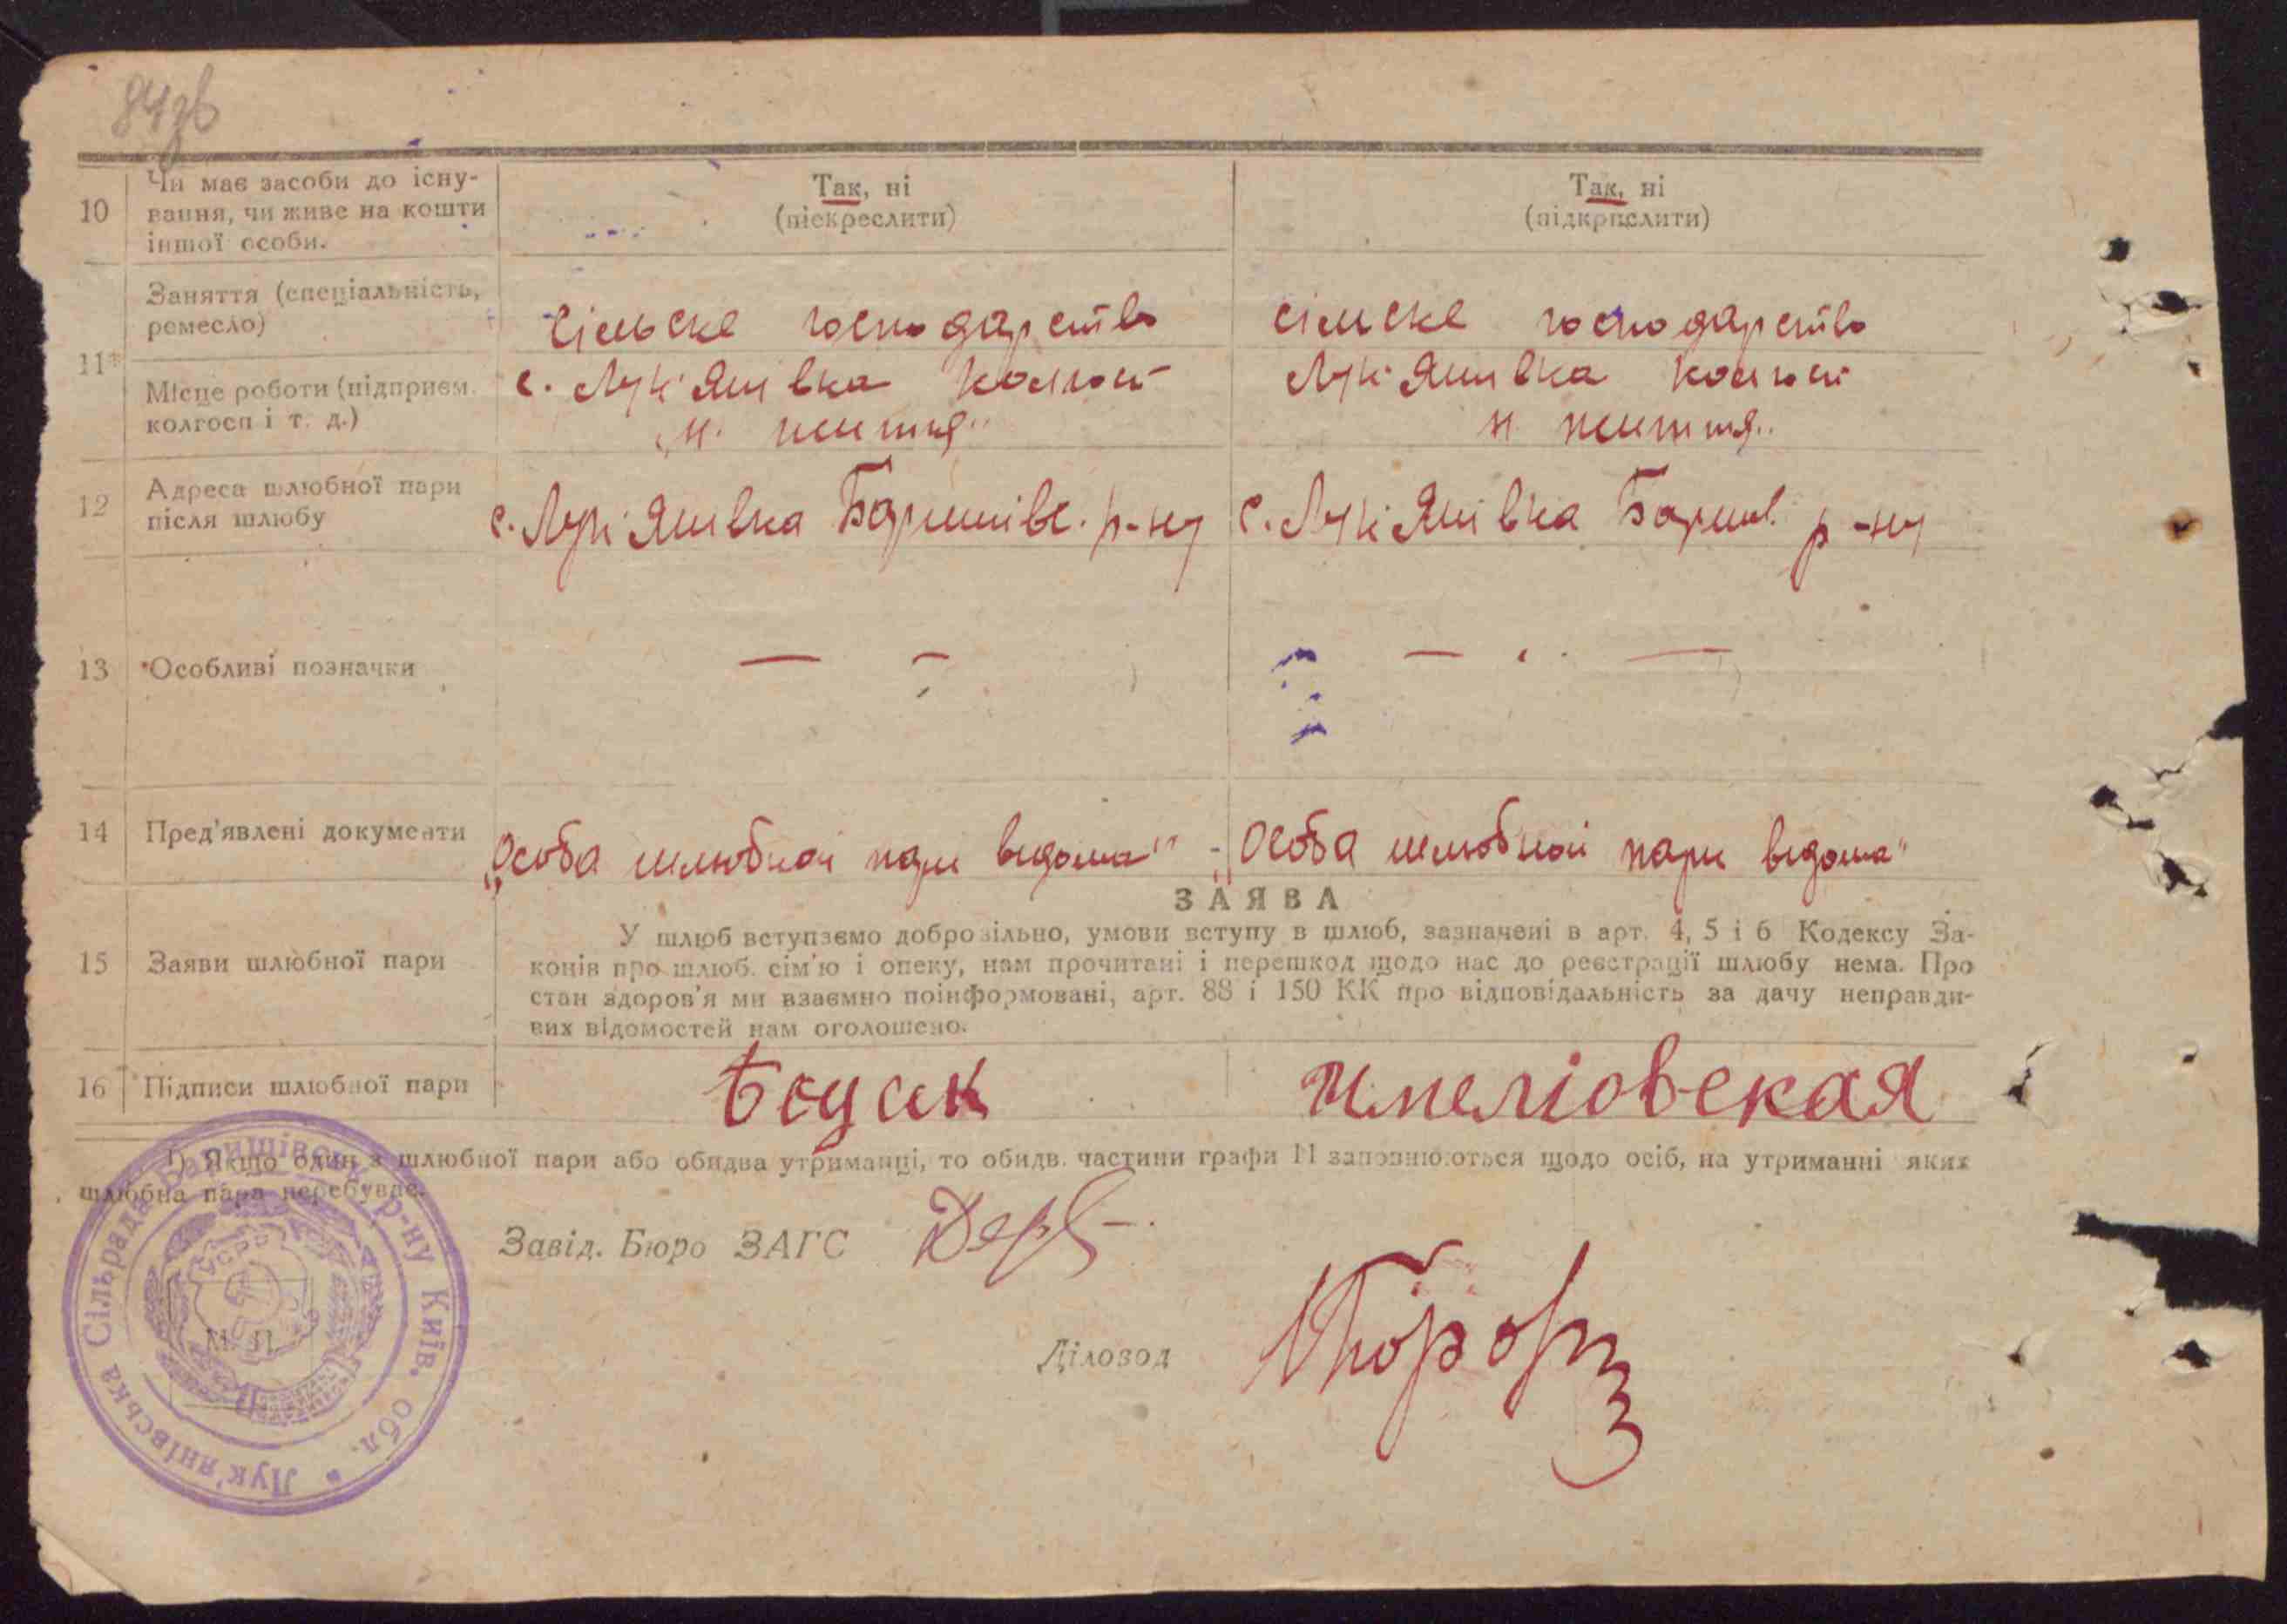 84зв
10
Чи має засоби до існу-
вання, чи живе на кошти
іншої особи.
Так, ні
(піскреслити)
Так, ні
(підкрислити)
11*
Заняття (спеціальність,
ремесло)
сільске господарство
сільске господарство
Місце роботи (підприєм.
колгосп і т. д.)
с. Лук'янівка колгосп
„н. життя"
Лук'янівка колгосп
н. життя"
12
Адреса шлюбної пари
після шлюбу
с. Лук'янівка Баришівс. р-ну
с. Лук'янівка Баришів. р-ну
13
Особливі позначки
— —
— —
14
Пред'явлені документи
„Особа шлюбной пари видома"
„Особа шлюбной пари видома"
ЗАЯВА
15
Заяви шлюбної пари
У шлюб вступаємо добровільно, умови вступу в шлюб, зазначені в арт. 4, 5 і 6 Кодексу За-
конів про шлюб. сім'ю і опеку, нам прочитані і перешкод щодо нас до реєстрації шлюбу нема. Про
стан здоров'я ми взаємно поінформовані, арт. 88 і 150 КК про відповідальність за дачу неправди-
вих відомостей нам оголошено.
16
Підписи шлюбної пари
¹) Якщо один з шлюбної пари або обидва утриманці, то обидв. частини графи 11 заповнюються щодо осіб, на утриманні яких
шлюбна пара перебуває.
Завід. Бюро ЗАГС
Діловод
М. П.
Лук'янівська Сільрада Баришівськ. р-ну Київ. обл.
УСРР